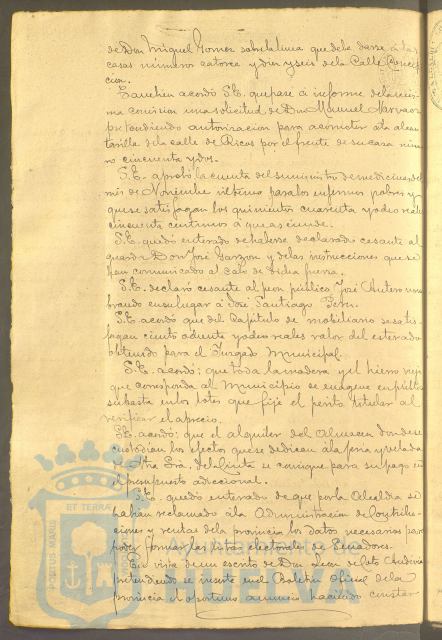 de Don Miguel Gomez sobre la linea que debe darse á las
casas números catorce y diez y seis de la Calle Concep
cion.
Tambien acordó S.E. que pase á informe de la mis
ma comision una solicitud de Don Manuel Narvaez
pretendiendo autorizacion para acometer á la alcan
tarilla de la calle de Ricos por el frente de su casa núme
ro cincuenta y dos.
S.E. aprobó la cuenta del suministro de medicinas del
mes de Noviembre último para los enfermos pobres y
que se satisfagan los quinientos cuarenta y dos reales
cincuenta centimos á que asciende.
S.E. quedó enterado de haberse declarado cesante al
guarda Don José Garzon y de las instrucciones que se
han comunicado al cabo de dicha fuerza.
S.E. declaró cesante al peon público José Antero nom
brando en su lugar á José Santiago Perez.
S.E. acordó que del Capítulo de mobiliario se satis
fagan ciento ochenta y dos reales valor del esterado
obtenido para el Juzgado Municipal.
S.E. acordó: que toda la madera y el hierro viejo
que corresponda al Municipio se enagene en pública
subasta en los lotes que fije el perito titular al
verificar el aprecio.
S.E. acordó: que el alquiler del Almacen donde se
custodian los efectos que se dedican á la feria y velada
de Ntra Sra. de la Cinta se consigne para su pago en
el presupuesto adicional.
S.E. quedó enterado de que por la Alcaldia se
habian reclamado á la Administracion de Contribu
ciones y rentas de la provincia los datos necesarios para
poder formar las listas electorales de Senadores.
En vista de un escrito de Don Juan de
pretendiendo se inserte en el Boletin Oficial de la
provincia el oportuno anuncio haciendo constar
PORTUS MARIS ET TERRAE
Ayuntamiento de
HUELVA